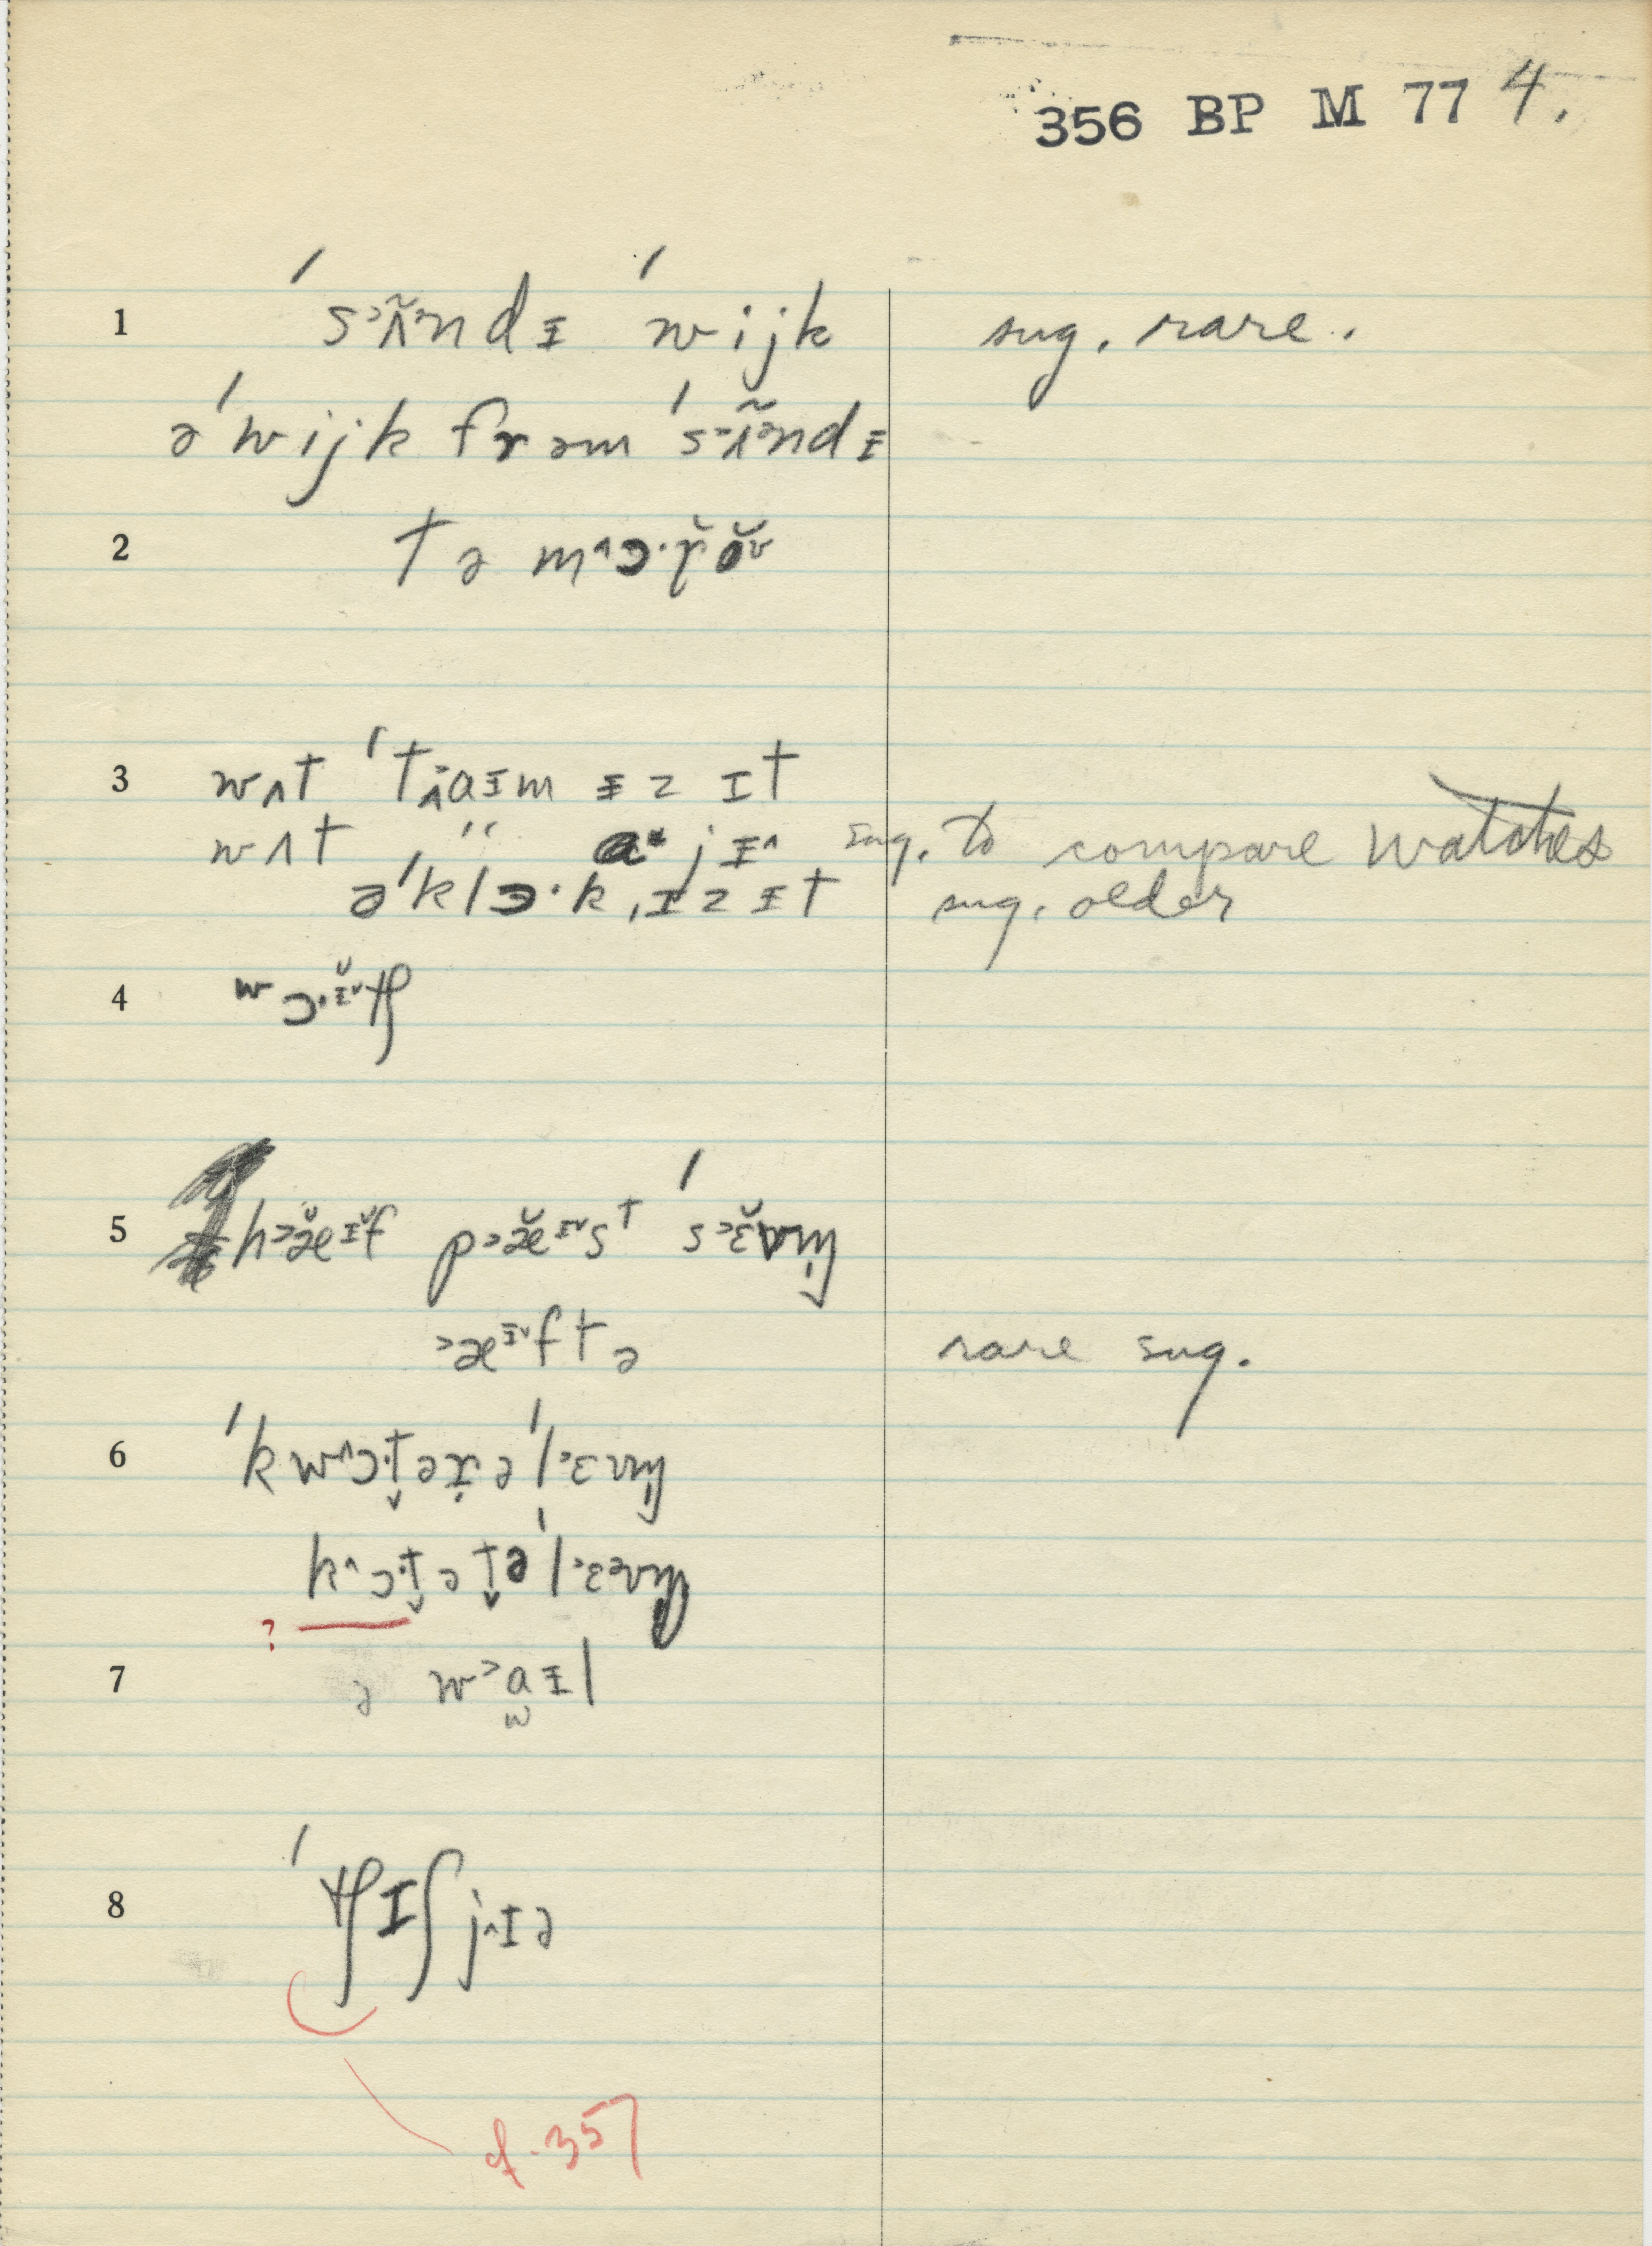 356 BP M 77 4.
1 ˈs˃ʌ̃˃ndɪ ˈwijk sug. rare.
əˈwijk frəm ˈs˃ʌ̃˃ndɪ
2 tə m˄ɔ·r̆ŏ˅
3 wʌt ˈtʌ˃aɪm ɪz ɪt
wʌt " jɪ˄ sug. to compare watches
əˈklɔ·k ɪz ɪt sug. older
4 wɔ·ɪ̆˅tʃ
5 h˃æ̆ɪ̆˅f p˃æ̆ɪ˅st ˈs˃ɛ̆vm̩
˃æɪ˅ftə rare sug.
6 ˈkw˄ɔ·t̬ərəˈl˃ɛvm̩
k˄ɔ·t̬ət̬əˈl˃ɛəvm̩
?
7 ə w˃aɪl
8 ˈtʃɪʃj˄ɪə
cf. 357